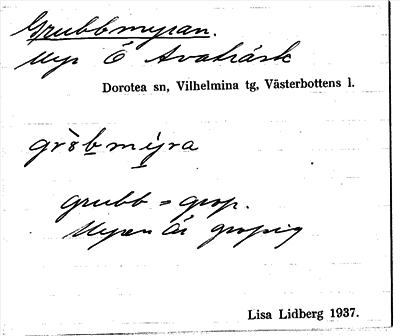 Grubbmyran.
Myr Ö Avaträsk
Dorotea sn, Vilhelmina tg, Västerbottens l.
grò̀b mýra
grubb = grop.
Myren är gropig
Lisa Lidberg 1937.